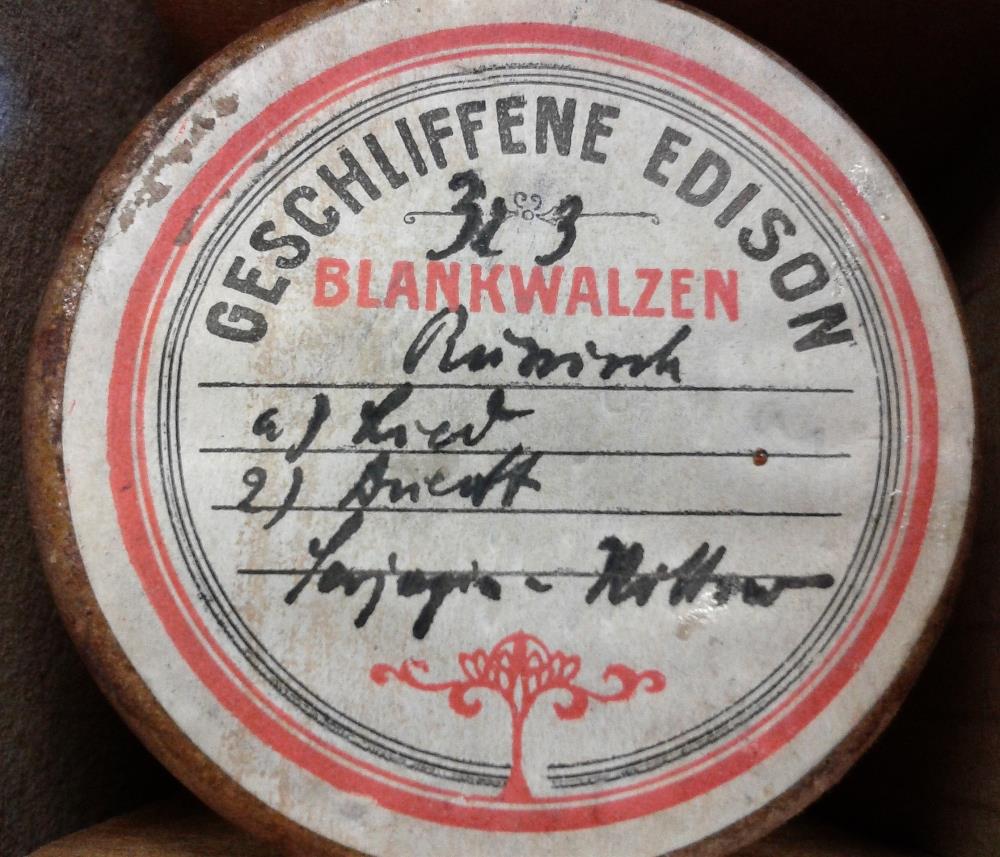 GESCHLIFFENE EDISON
3
BLANKWALZEN
Russisch
a) Lied
2) Duett